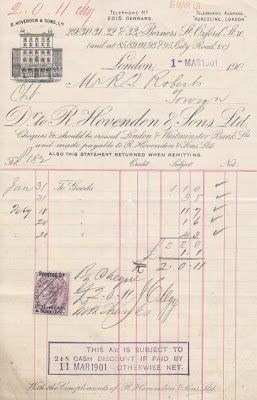 2.0.11 chq
5 MAR 01
R. HOVENDEN & SONS, LTD
TELEPHONE Nº
2015 GERRARD.
TELEGRAPHIC ADDRESS,
"AUREOLINE, LONDON."
29, 30, 31, 32 & 33, Berners St. Oxford St. W.
(and at 85, 89, 91, 93 & 95, City Road, E.C.)
London, 1 - MAR 1901 190
Mr R D Roberts
Towyn
Dr. to R. Hovenden & Sons Ltd.
Cheques &c should be crossed London & Westminster Bank Ltd
and made payable to R. Hovenden & Sons Ltd.
ALSO THIS STATEMENT RETURNED WHEN REMITTING.
Credit Subject. Net.
Jan 31 To Goods 1 1 0
Feby 18 11 7
1 6
2 2 0
1.1
2.0.11
POSTAGE &
By Cheque
£2.0.11
With thanks
THIS A/c IS SUBJECT TO
2½% CASH DISCOUNT IF PAID BY
11 MAR 1901 OTHERWISE NET.
With the Compliments of R. Hovenden & Sons Ltd.